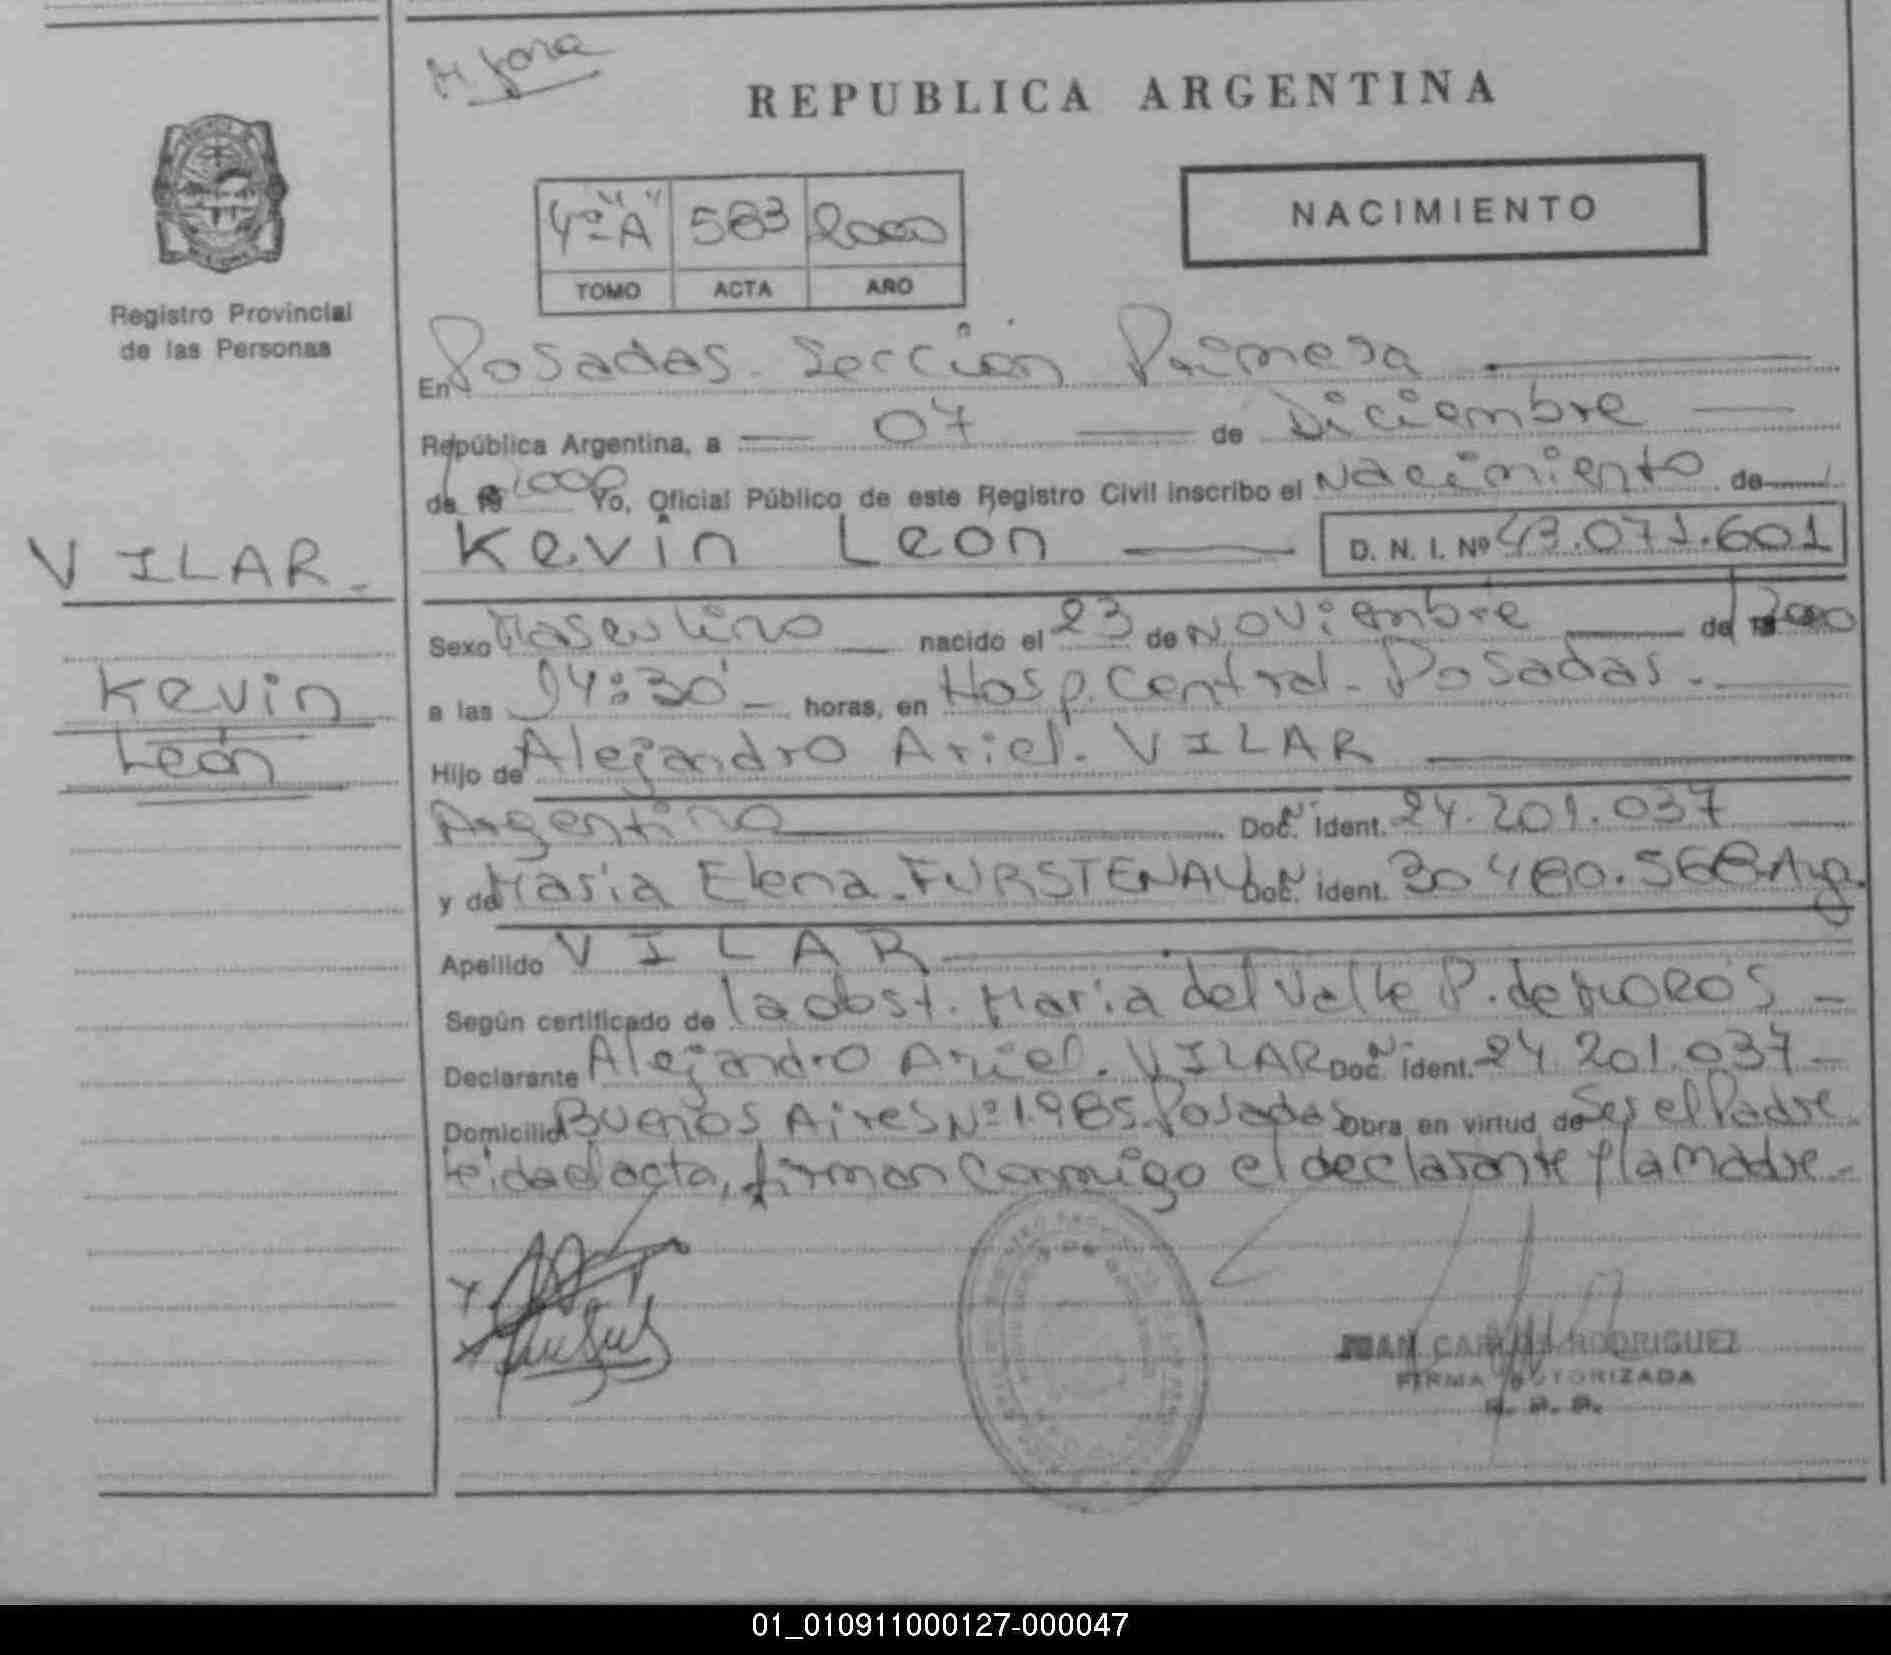 REPUBLICA ARGENTINA
NACIMIENTO
4º "A" 583 2000
TOMO ACTA AÑO
Registro Provincial
de las Personas
En Posadas. Sección Primera
República Argentina, a 07 de Diciembre
de 2000 Yo, Oficial Público de este Registro Civil inscribo el Nacimiento de
VILAR.
Kevin León D. N. I. Nº 43.071.601
Kevin
León
Sexo Masculino nacido el 23 de Noviembre de 2000
a las 14:30' horas, en Hosp. Central. Posadas.
Hijo de Alejandro Ariel. VILAR
Argentino Doc. Ident. 24.201.037
y de María Elena. FURSTENAU Doc. Ident. 30 480.568 Arg.
Apellido VILAR
Según certificado de la obst. María del Valle P. de
Declarante Alejandro Ariel. VILAR Doc. Ident. 24 201.037
Domicilio Buenos Aires Nº 1985. Posadas Obra en virtud de Ser el Padre
leída el acta, firman conmigo el declarante y la Madre.
JUAN CARLOS RODRIGUEZ
FIRMA AUTORIZADA
R. P. P.
01_010911000127-000047